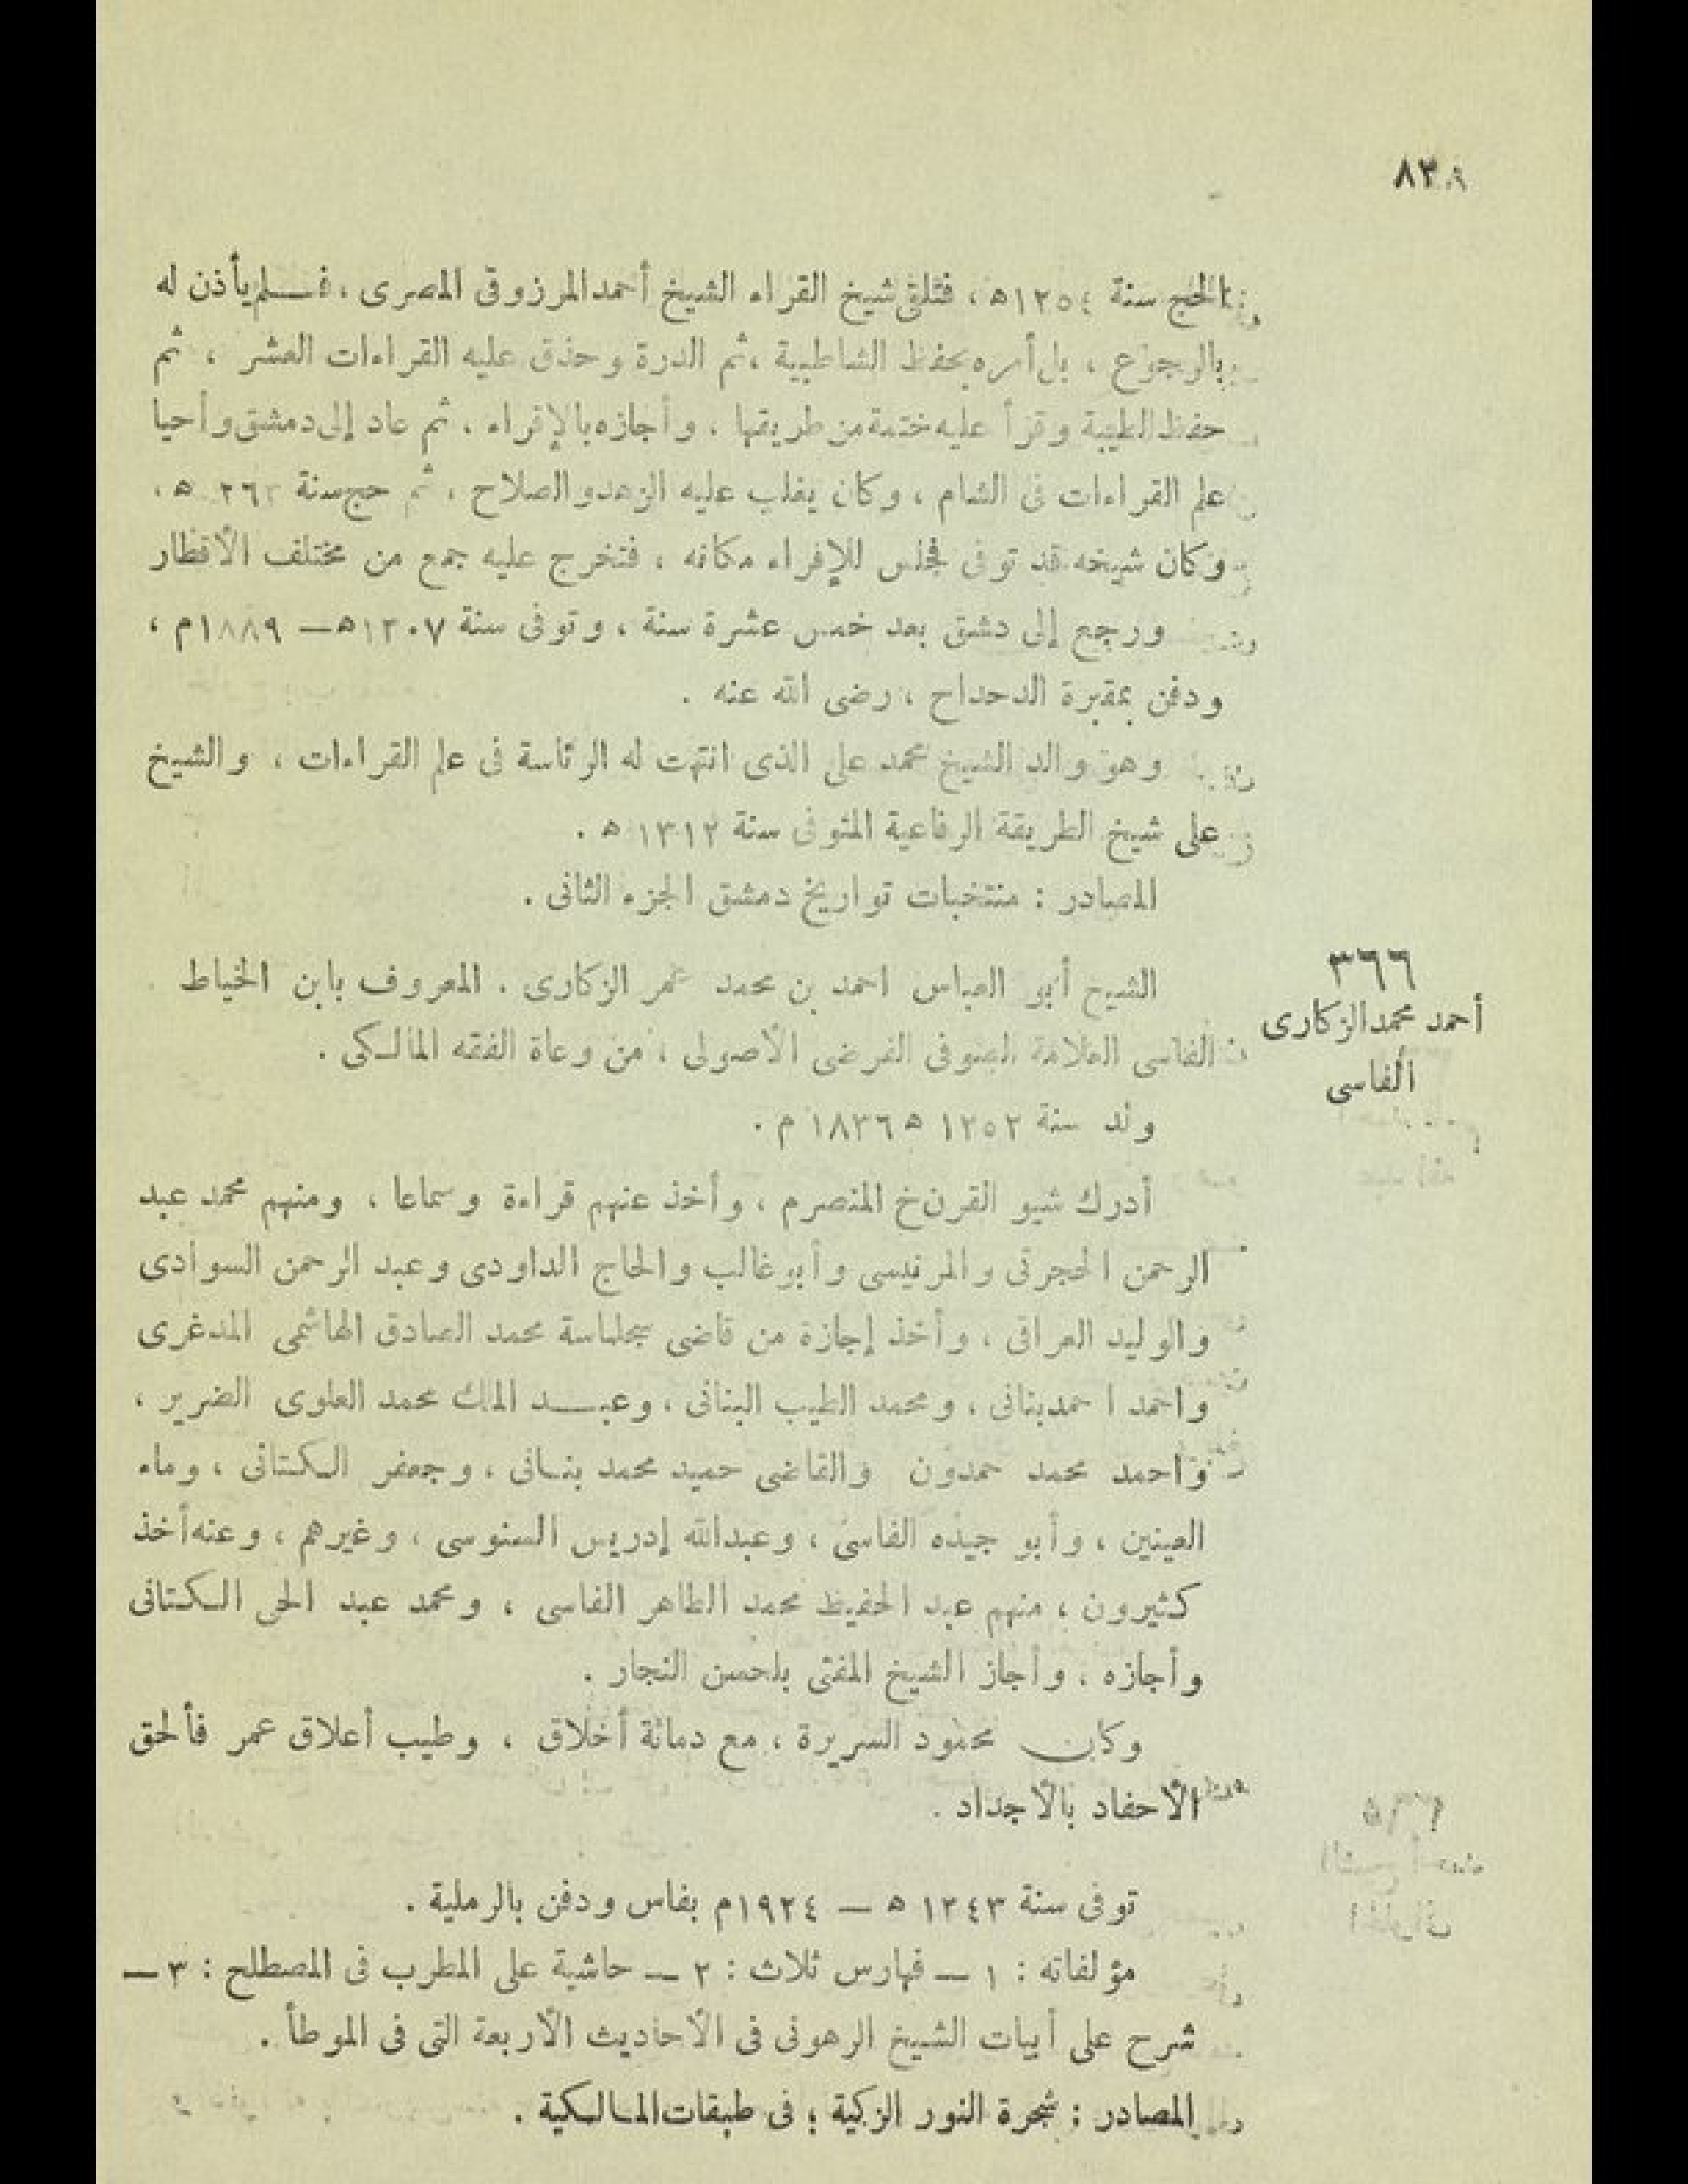 ٨٣٨
الحج سنة ١٢٥٤ه ، فتلقى شيخ القراء الشيخ أحمد المرزوقى المصرى ، فلم يأذن له
بالرجوع ، بل أمره بحفظ الشاطبية ، ثم الدرة وحذق عليه القراءات العشر ، ثم
حفظ الطيبة وقرأ عليه ختمة من طريقها ، وأجازه بالإقراء ، ثم عاد إلى دمشق وأحيا
علم القراءات فى الشام ، وكان يغلب عليه الزهد والصلاح ، ثم حج سنة ه ،
وكان شيخه قد توفى فجلس للإقراء مكانه ، فتخرج عليه جمع من مختلف الأقطار
ورجع إلى دشق بعد خمس عشرة سنة ، وتوفى سنة ١٣٠٧ه — ١٨٨٩م ،
ودفن بمقبرة الدحداح ، رضى الله عنه .
وهو والد الشيخ محمد على الذى انتهت له الرئاسة فى علم القراءات ، والشيخ
على شيخ الطريقة الرفاعية المتوفى سنة ١٣١٢ ه .
المصادر : منتخبات تواريخ دمشق الجزء الثانى .
٣٦٦
أحمد محمد الزكارى
الفاسى
الشيخ أبو العباس احمد بن محمد عمر الزكارى . المعروف بابن الخياط
الفاسى العلامة الصوفى الفرضى الأصولى ، من وعاة الفقه المالكى .
ولد سنة ١٢٥٢ ه ١٨٣٦ م .
أدرك شيو القرن خ المنصرم ، وأخذ عنهم قراءة وسماعا ، ومنهم محمد عبد
الرحمن الحجرتى والمرنيسى وأبو غالب والحاج الداودى وعبد الرحمن السوادى
والوليد العراقى ، وأخذ إجازة من قاضى سجلماسة محمد الصادق الهاشمى المدغرى
واحمد احمد بنانى ، ومحمد الطيب البنانى ، وعبد الملك محمد العلوى الضرير ،
واحمد محمد حمدون والقاضى حميد محمد بنانى ، وجعفر الكتانى ، وماء
العينين ، وأبو جيده الفاسى ، وعبدالله إدريس السنوسى ، وغيرهم ، وعنه أخذ
كثيرون ، منهم عبد الحفيظ محمد الطاهر الفاسى ، ومحمد عبد الحى الكتانى
وأجازه ، وأجاز الشيخ المفتى بلحسن النجار .
وكان محمود السريرة ، مع دماثة أخلاق ، وطيب أعلاق عمر فألحق
الأحفاد بالأجداد .
توفى سنة ١٣٤٣ ه — ١٩٢٤م بفاس ودفن بالرملية .
مؤلفاته : ١ — فهارس ثلاث : ٢ — حاشية على المطرب فى المصطلح : ٣ —
شرح على أبيات الشيخ الرهونى فى الأحاديث الأربعة التى فى الموطأ .
المصادر : شجرة النور الزكية ؛ فى طبقات المالكية .